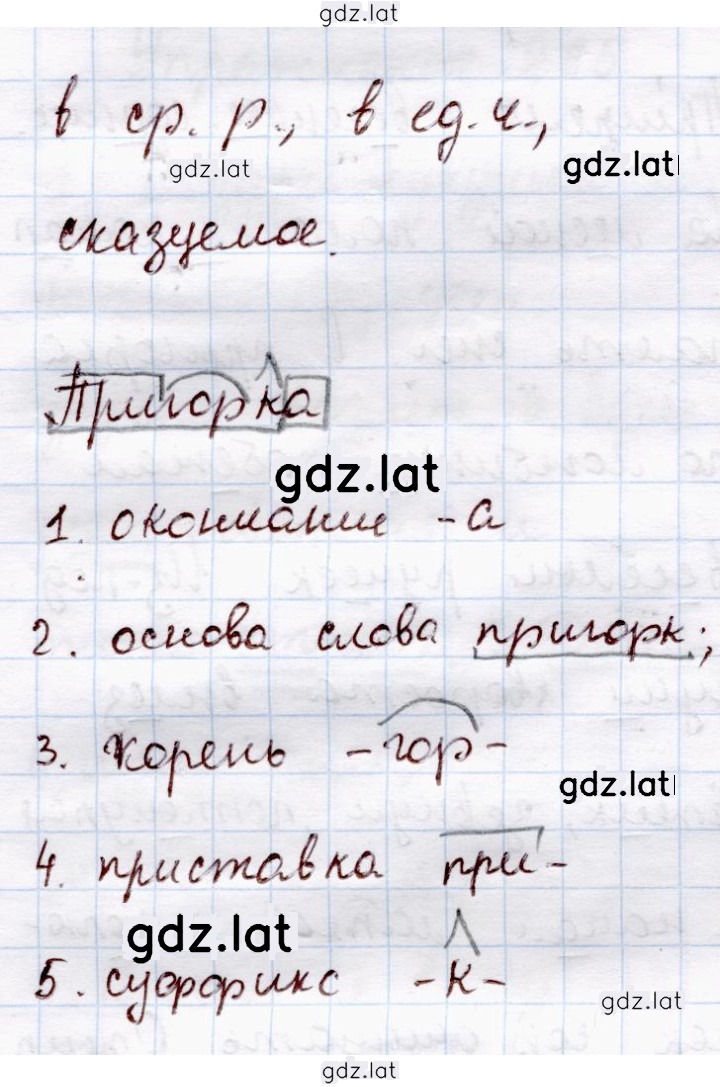 gdz.lat
в ср. р., в ед. ч.,
gdz.lat
gdz.lat
сказуемое.
Пригорка
gdz.lat
1. окончание -а
2. основа слова пригорк;
3. корень -гор-
gdz.lat
4. приставка при-
gdz.lat
5. суффикс -к-
gdz.lat
gdz.lat